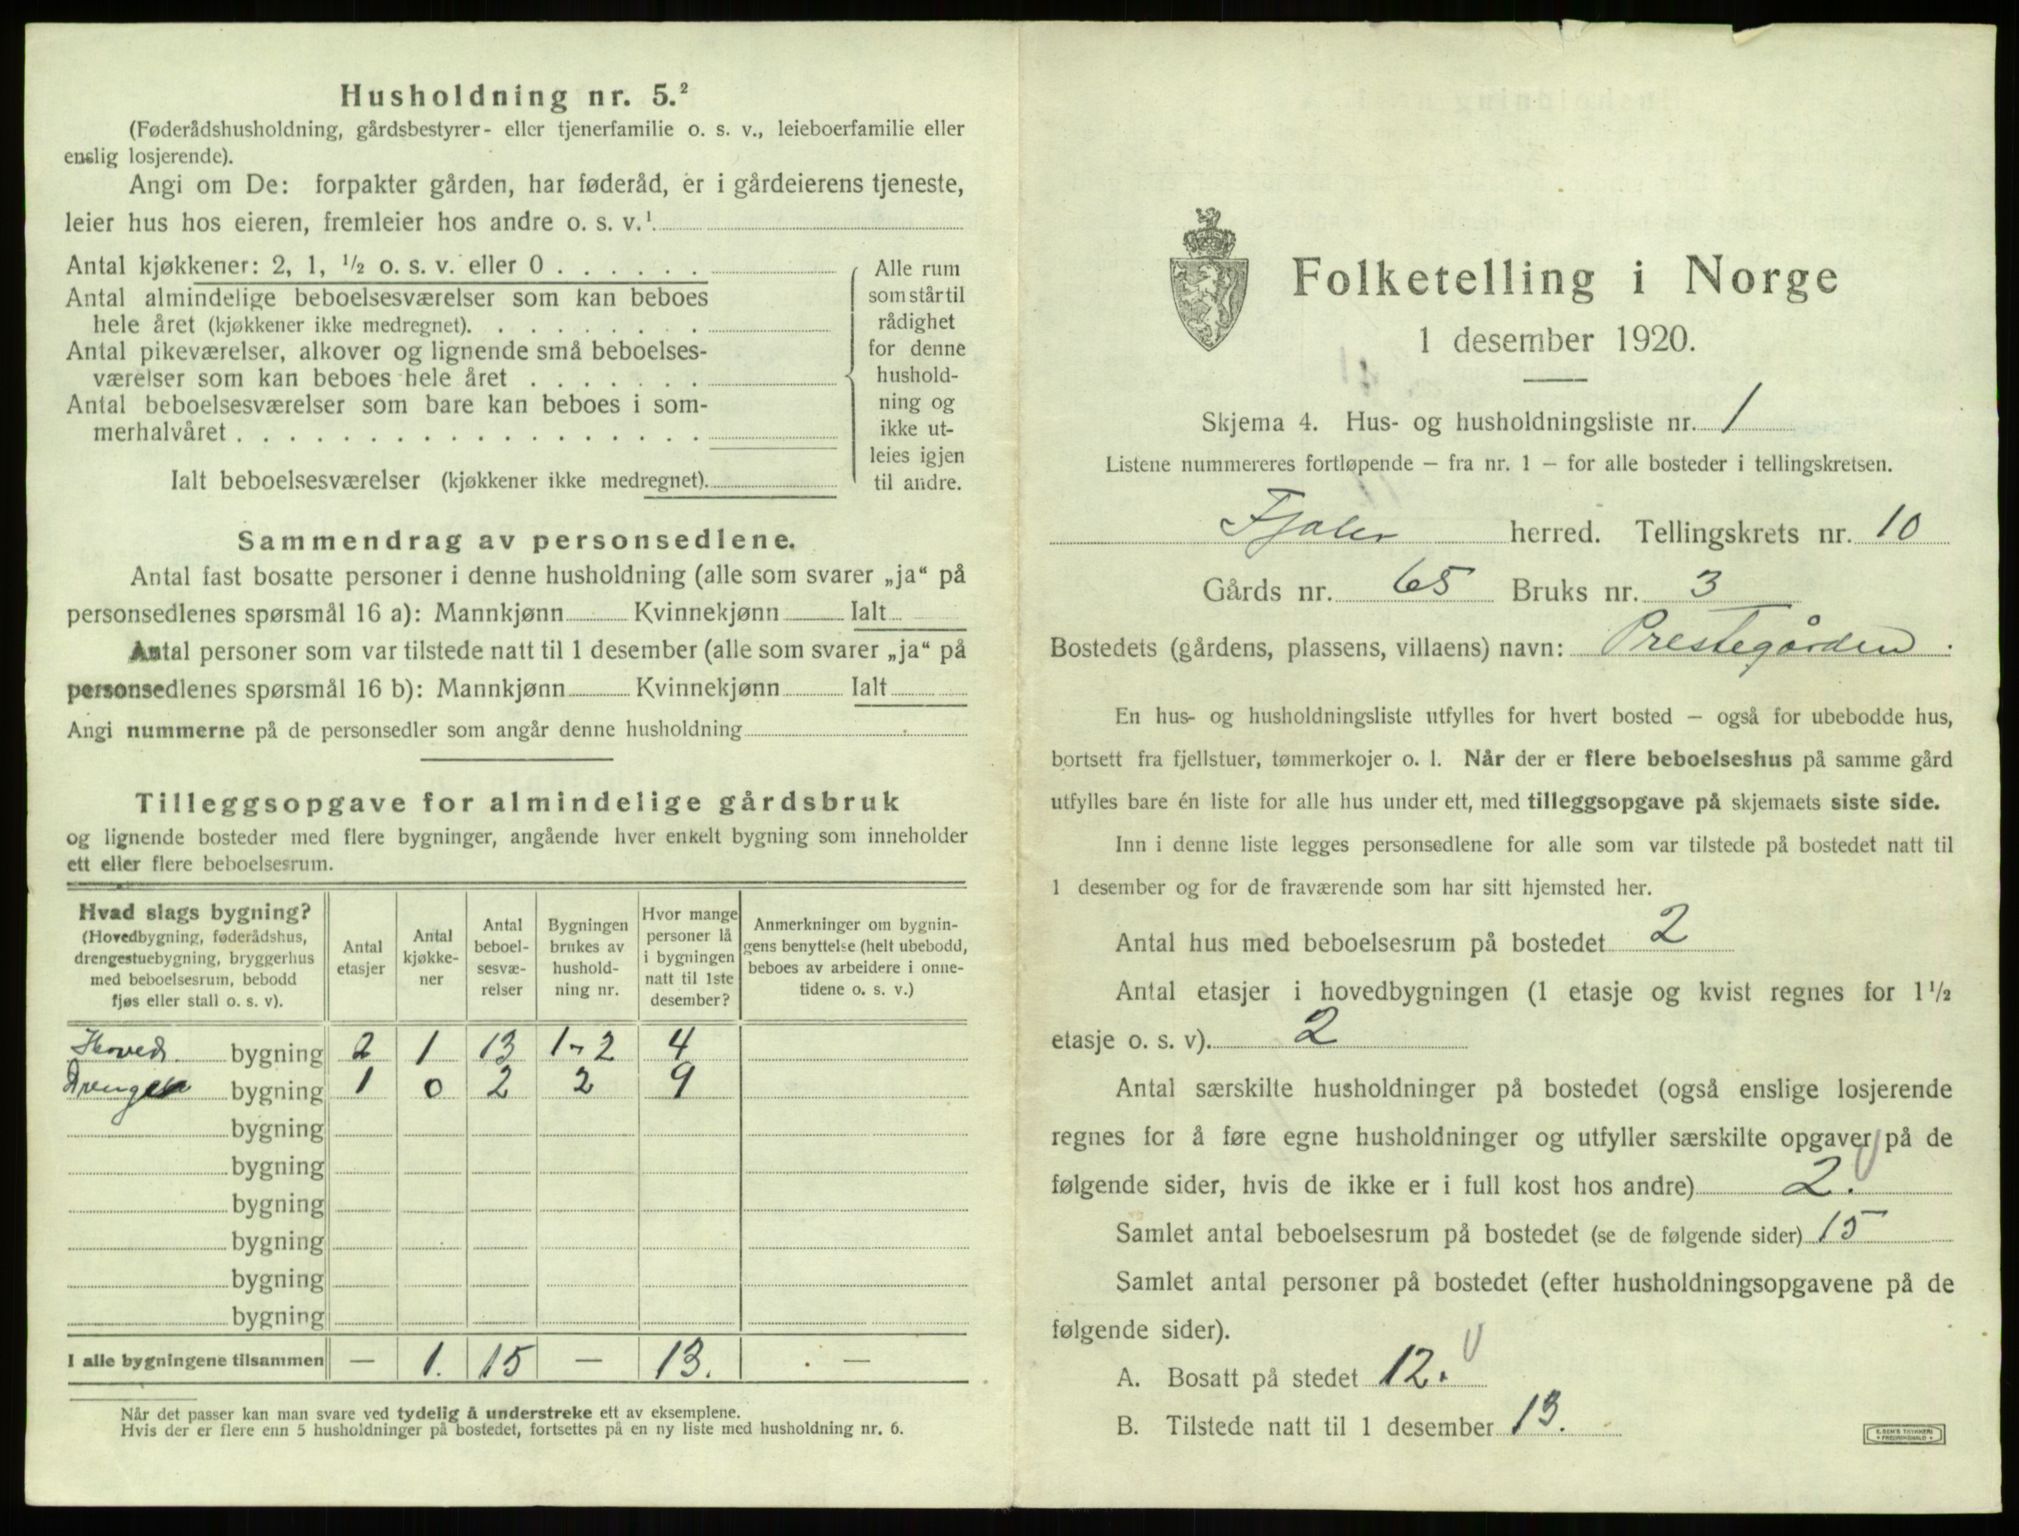 Husholdning nr. 5.²
(Føderådshusholdning, gårdsbestyrer- eller tjenerfamilie o. s. v., leieboerfamilie eller
enslig losjerende).
Angi om De: forpakter gården, har føderåd, er i gårdeierens tjeneste,
leier hus hos eieren, fremleier hos andre o. s. v.¹
Antal kjøkkener: 2, 1, ½ o. s. v. eller 0 . . . . . .
Antal almindelige beboelsesværelser som kan beboes
hele året (kjøkkener ikke medregnet). . . . . . . . .
Antal pikeværelser, alkover og lignende små beboelses-
værelser som kan beboes hele året . . . . . . .
Antal beboelsesværelser som bare kan beboes i som-
merhalvåret . . . . . . . . . . . . . . . . . .
Ialt beboelsesværelser (kjøkkener ikke medregnet).
Alle rum
som står til
rådighet
for denne
hushold-
ning og
ikke ut-
leies igjen
til andre.
Sammendrag av personsedlene.
Antal fast bosatte personer i denne husholdning (alle som svarer „ja“ på
personsedlenes spørsmål 16 a): Mannkjønn Kvinnekjønn Ialt
Antal personer som var tilstede natt til 1 desember (alle som svarer „ja“ på
personsedlenes spørsmål 16 b): Mannkjønn Kvinnekjønn Ialt
Angi nummerne på de personsedler som angår denne husholdning
Tilleggsopgave for almindelige gårdsbruk
og lignende bosteder med flere bygninger, angående hver enkelt bygning som inneholder
ett eller flere beboelsesrum.
Hvad slags bygning?
(Hovedbygning, føderådshus,
drengestuebygning, bryggerhus
med beboelsesrum, bebodd
fjøs eller stall o. s. v).
Antal
etasjer
Antal
kjøkke-
ner
Antal
beboel-
sesvæ-
relser
Bygningen
brukes av
hushold-
ning nr.
Hvor mange
personer lå
i bygningen
natt til 1ste
desember?
Anmerkninger om bygnin-
gens benyttelse (helt ubebodd,
beboes av arbeidere i onne-
tidene o. s. v.)
Hoved bygning 2 1 13 1-2 4
bygning 1 0 2 2 9
bygning
bygning
bygning
bygning
bygning
bygning
I alle bygningene tilsammen — 1. 15 — 13. —
Når det passer kan man svare ved tydelig å understreke ett av eksemplene.
Hvis der er flere enn 5 husholdninger på bostedet, fortsettes på en ny liste med husholdning nr. 6.
Folketelling i Norge
1 desember 1920.
Skjema 4. Hus- og husholdningsliste nr. 1
Listene nummereres fortløpende – fra nr. 1 – for alle bosteder i tellingskretsen.
Fjaler herred. Tellingskrets nr. 10
Gårds nr. 65 Bruks nr. 3
Bostedets (gårdens, plassens, villaens) navn: Prestegården.
En hus- og husholdningsliste utfylles for hvert bosted – også for ubebodde hus,
bortsett fra fjellstuer, tømmerkojer o. l. Når der er flere beboelseshus på samme gård
utfylles bare én liste for alle hus under ett, med tilleggsopgave på skjemaets siste side.
Inn i denne liste legges personsedlene for alle som var tilstede på bostedet natt til
1 desember og for de fraværende som har sitt hjemsted her.
Antal hus med beboelsesrum på bostedet 2
Antal etasjer i hovedbygningen (1 etasje og kvist regnes for 1½
etasje o. s. v). 2
Antal særskilte husholdninger på bostedet (også enslige losjerende
regnes for å føre egne husholdninger og utfyller særskilte opgaver på de
følgende sider, hvis de ikke er i full kost hos andre) 2.
Samlet antal beboelsesrum på bostedet (se de følgende sider) 15
Samlet antal personer på bostedet (efter husholdningsopgavene på de
følgende sider).
A. Bosatt på stedet 12.
B. Tilstede natt til 1 desember 13.